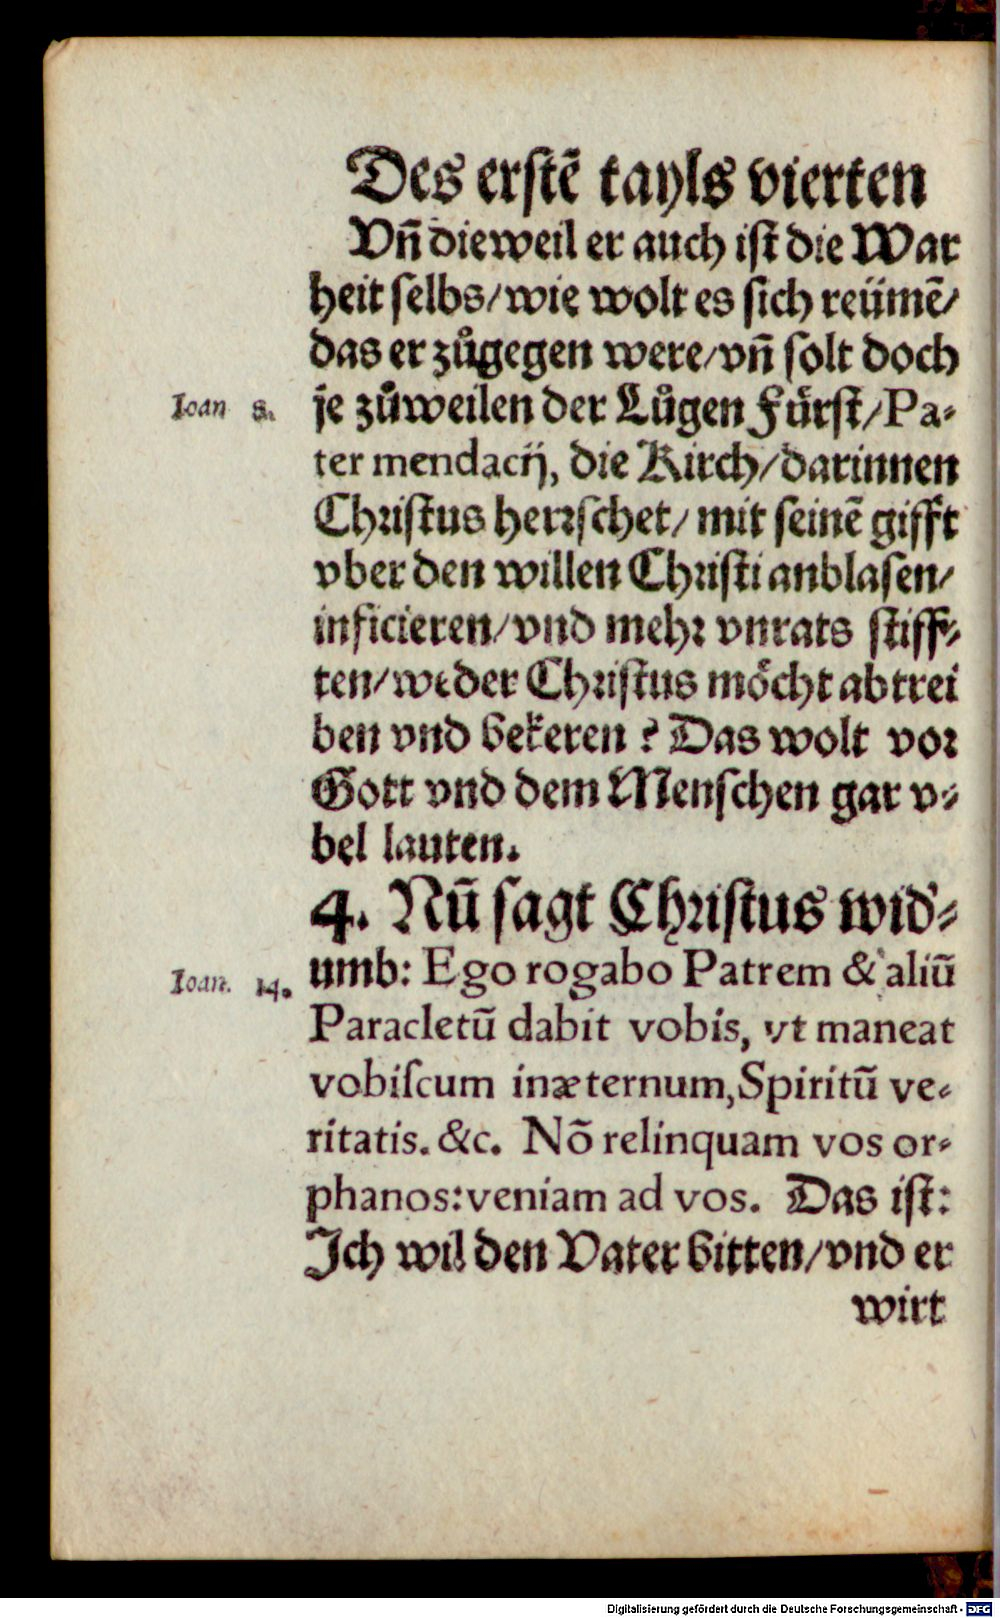 Des erstē tayls vierten
Vn̄ dieweil er auch ist die War
heit selbs/wie wolt es sich reümē/
das er zůgegen were/vn̄ solt doch
Ioan 8. je zůweilen der Lůgen Fürst/Pa-
ter mendacij, die Kirch/darinnen
Christus herrschet/mit seinē gifft
vber den willen Christi anblasen/
inficieren/vnd mehr vnrats stiff-
ten/weder Christus möcht abtrei
ben vnd bekeren? Das wolt vor
Gott vnd dem Menschen gar v-
bel lauten.
4. Nū sagt Christus wid'-
Ioan. 14. umb: Ego rogabo Patrem & aliū
Paracletū dabit vobis, vt maneat
vobiſcum inæternum, Spiritū ve-
ritatis. &c. Nō relinquam vos or-
phanos: veniam ad vos. Das ist:
Ich wil den Vater bitten/vnd er
wirt
Digitalisierung gefördert durch die Deutsche Forschungsgemeinschaft - DFG